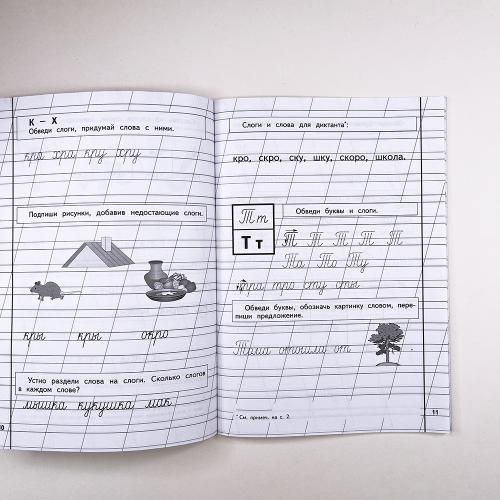 К – Х
Обведи слоги, придумай слова с ними.
кры хра кру хру
Подпиши рисунки, добавив недостающие слоги.
кры кры окро
Устно раздели слова на слоги. Сколько слогов
в каждом слове?
мышка кукушка мак
10
Слоги и слова для диктанта*:
кро, скро, ску, шку, скоро, школа.
Тт
Тт
Обведи буквы и слоги.
Т Т Т Т Т
Та То Ту
тра тро сту сты
Обведи буквы, обозначь картинку словом, пере-
пиши предложение.
Тома отошла от
* См. примеч. на с. 2.
11